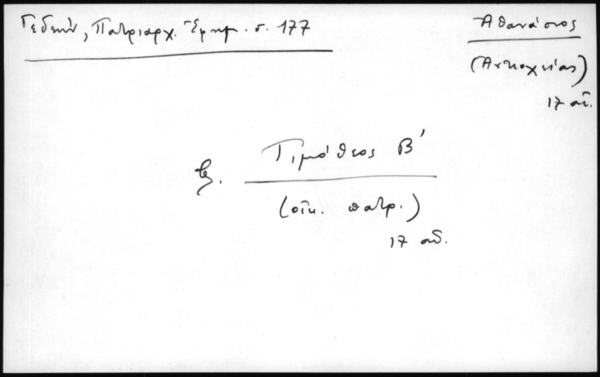 Γεδεών, Πατριαρχ. Ἐφημ. σ. 177
Ἀθανάσιος
(Ἀντιοχείας)
17 αἰ.
Τιμόθεος Β'
(οἰκ. πατρ.)
17 αἰ.